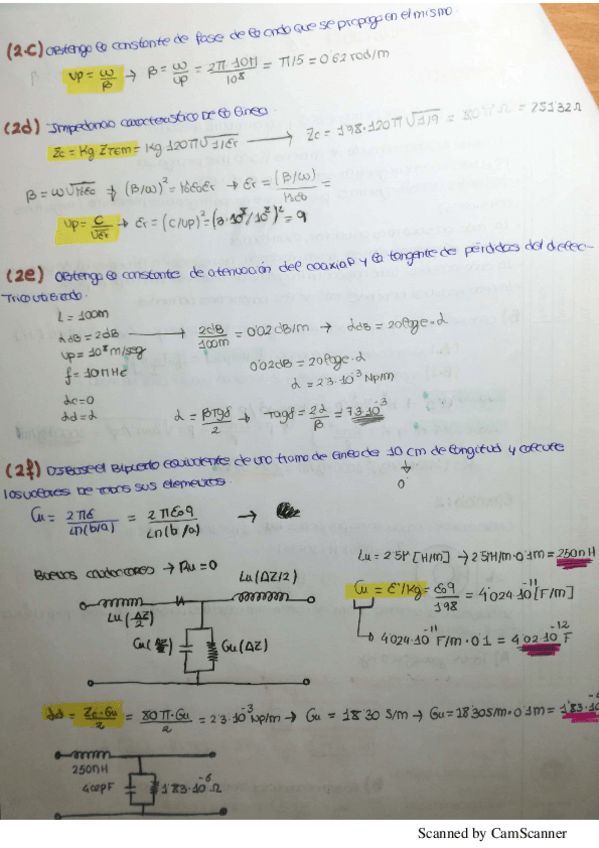 (2.C) Obtengo la constante de fase de la onda que se propaga en el mismo.
Vp = ω/β → β = ω/vp = 2π·10M/10⁸ = π/5 = 0'62 rad/m
(2d) Impedancia característica de la línea
Zc = Kg ZTEM = Kg 120π√1/εr → Zc = 1'98·120π√1/9 = 80π Ω = 251'32Ω
(β/ω)² = → εr = (β/ω)
vp = c/√εr → εr = (c/vp)² = (3·10⁸/10⁸)² = 9
(2e) Obtengo la constante de atenuación del coaxial y la tangente de pérdidas del dieléc-
trico utilizado.
L = 100m
αdB = 2dB → 2dB/100m = 0'02dB/m → αdB = 20loge·α
vp = 10⁸ m/seg
0'02dB = 20loge·α
f = 10MHz
α = 2'3·10⁻³ Np/m
αc = 0
αd = α
α = βTgδ/2 → Tagδ = 2α/β = 7'3·10⁻³
(2f) Dibuse el bipuerto equivalente de un tramo de línea de 10 cm de longitud y calcule
los valores de todos sus elementos
Cu = 2πε/Ln(b/a) = 2πε0 9/Ln(b/a) →
Lu = 2'5μ [H/m] → 2'5μH/m·0'1m = 250nH
Buenos conductores → Ru = 0
Lu(ΔZ/2)
Cu = ε'/Kg = ε0 9/1'98 = 4'024·10⁻¹¹ [F/m]
Lu(ΔZ/2)
Gu(ΔZ)
4'024·10⁻¹¹ F/m·0'1 = 4'02·10⁻¹² F
αd = Zc·Gu/2 = 80π·Gu/2 = 2'3·10⁻³ Np/m → Gu = 18'30 S/m → Gu = 18'30S/m·0'1m =
250nH
4'02pF
1'83·10⁻⁶ Ω
Scanned by CamScanner